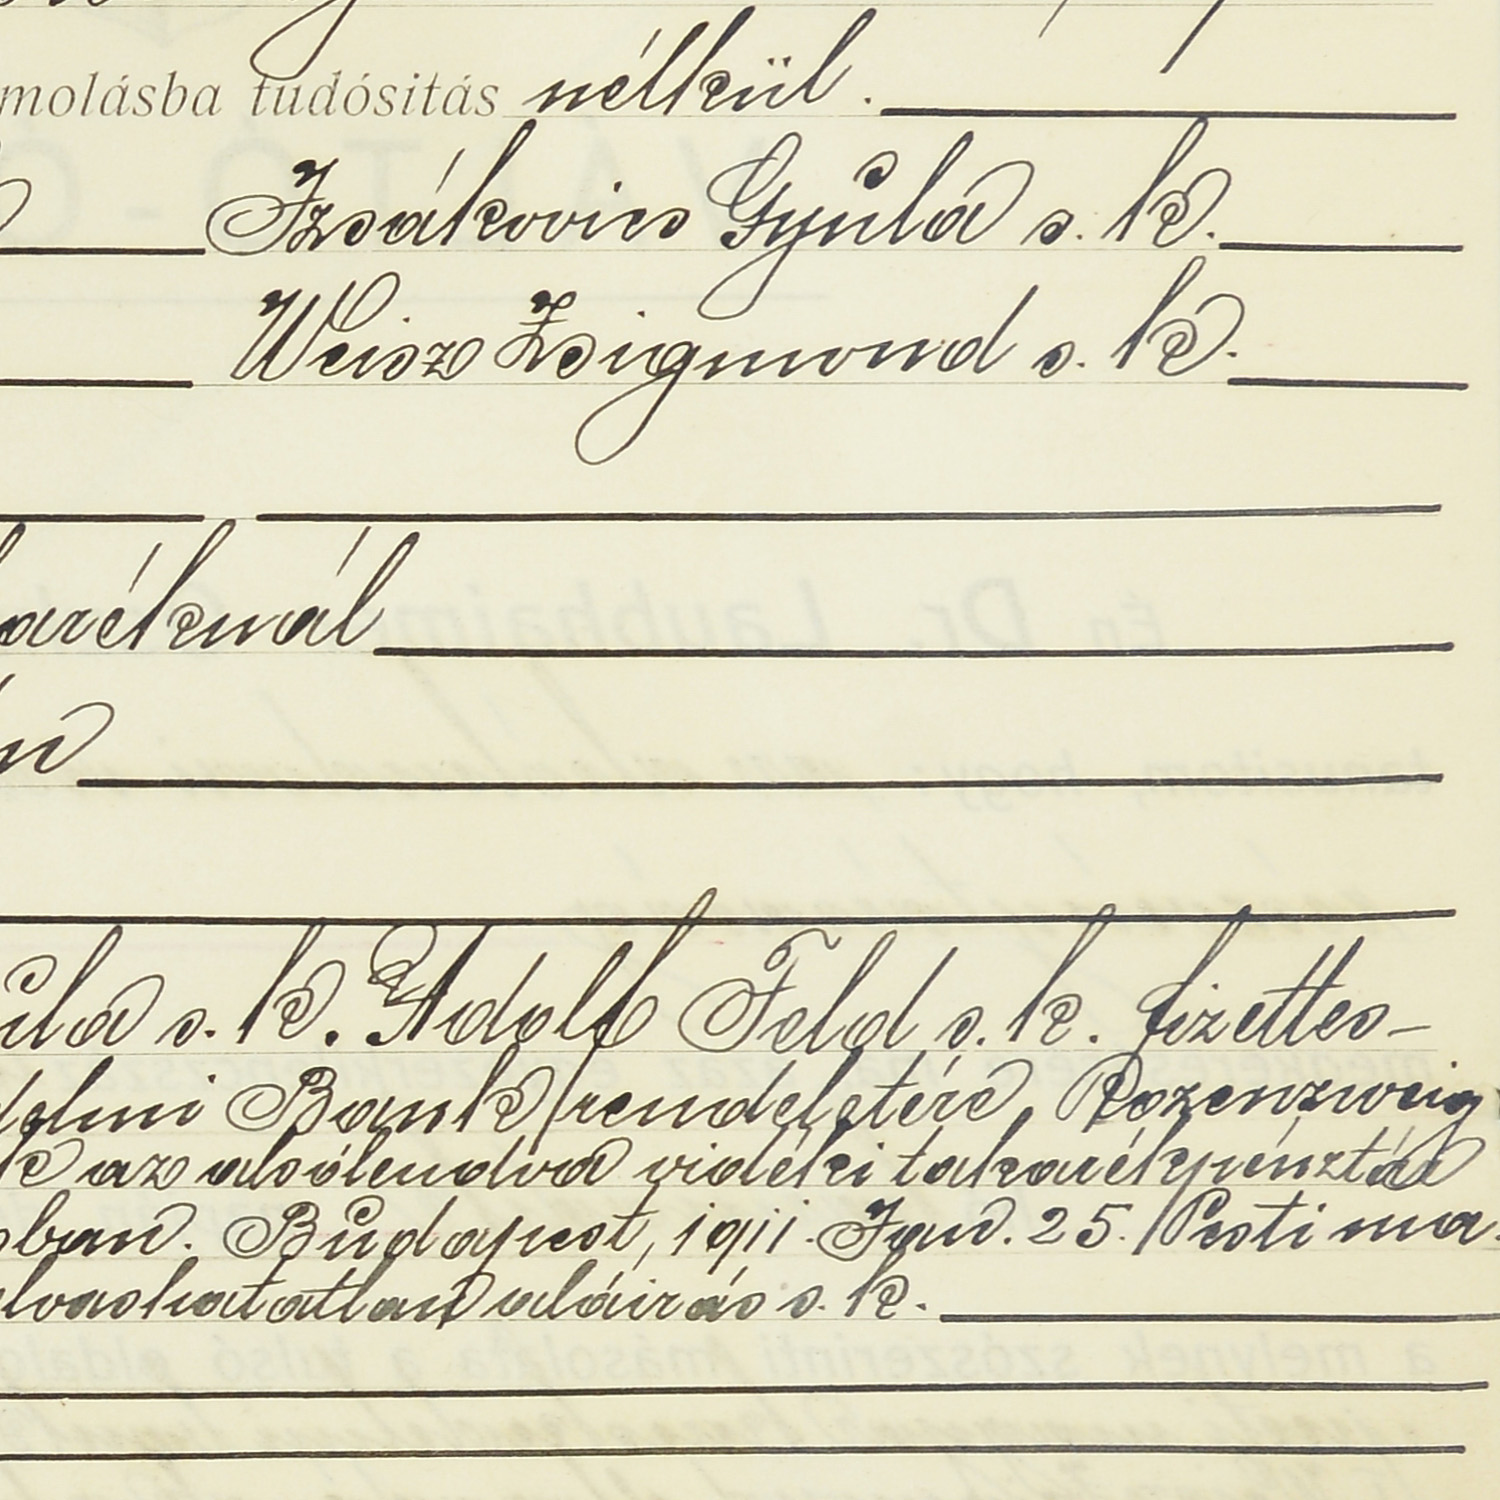 molásba tudósitás nélkül.
Izsákovics Gyula s. k.
Weisz Zsigmond s. k.
aréknál
n
ula s. k. Adolf Feld s. k. fizettes-
delmi Bank rendeletére, Rozenzweig
k az alsólendva vidéki takarékpénztár
ban. Budapest, 1911. Jan. 25. Pesti ma-
olvashatatlan aláirás s. k.